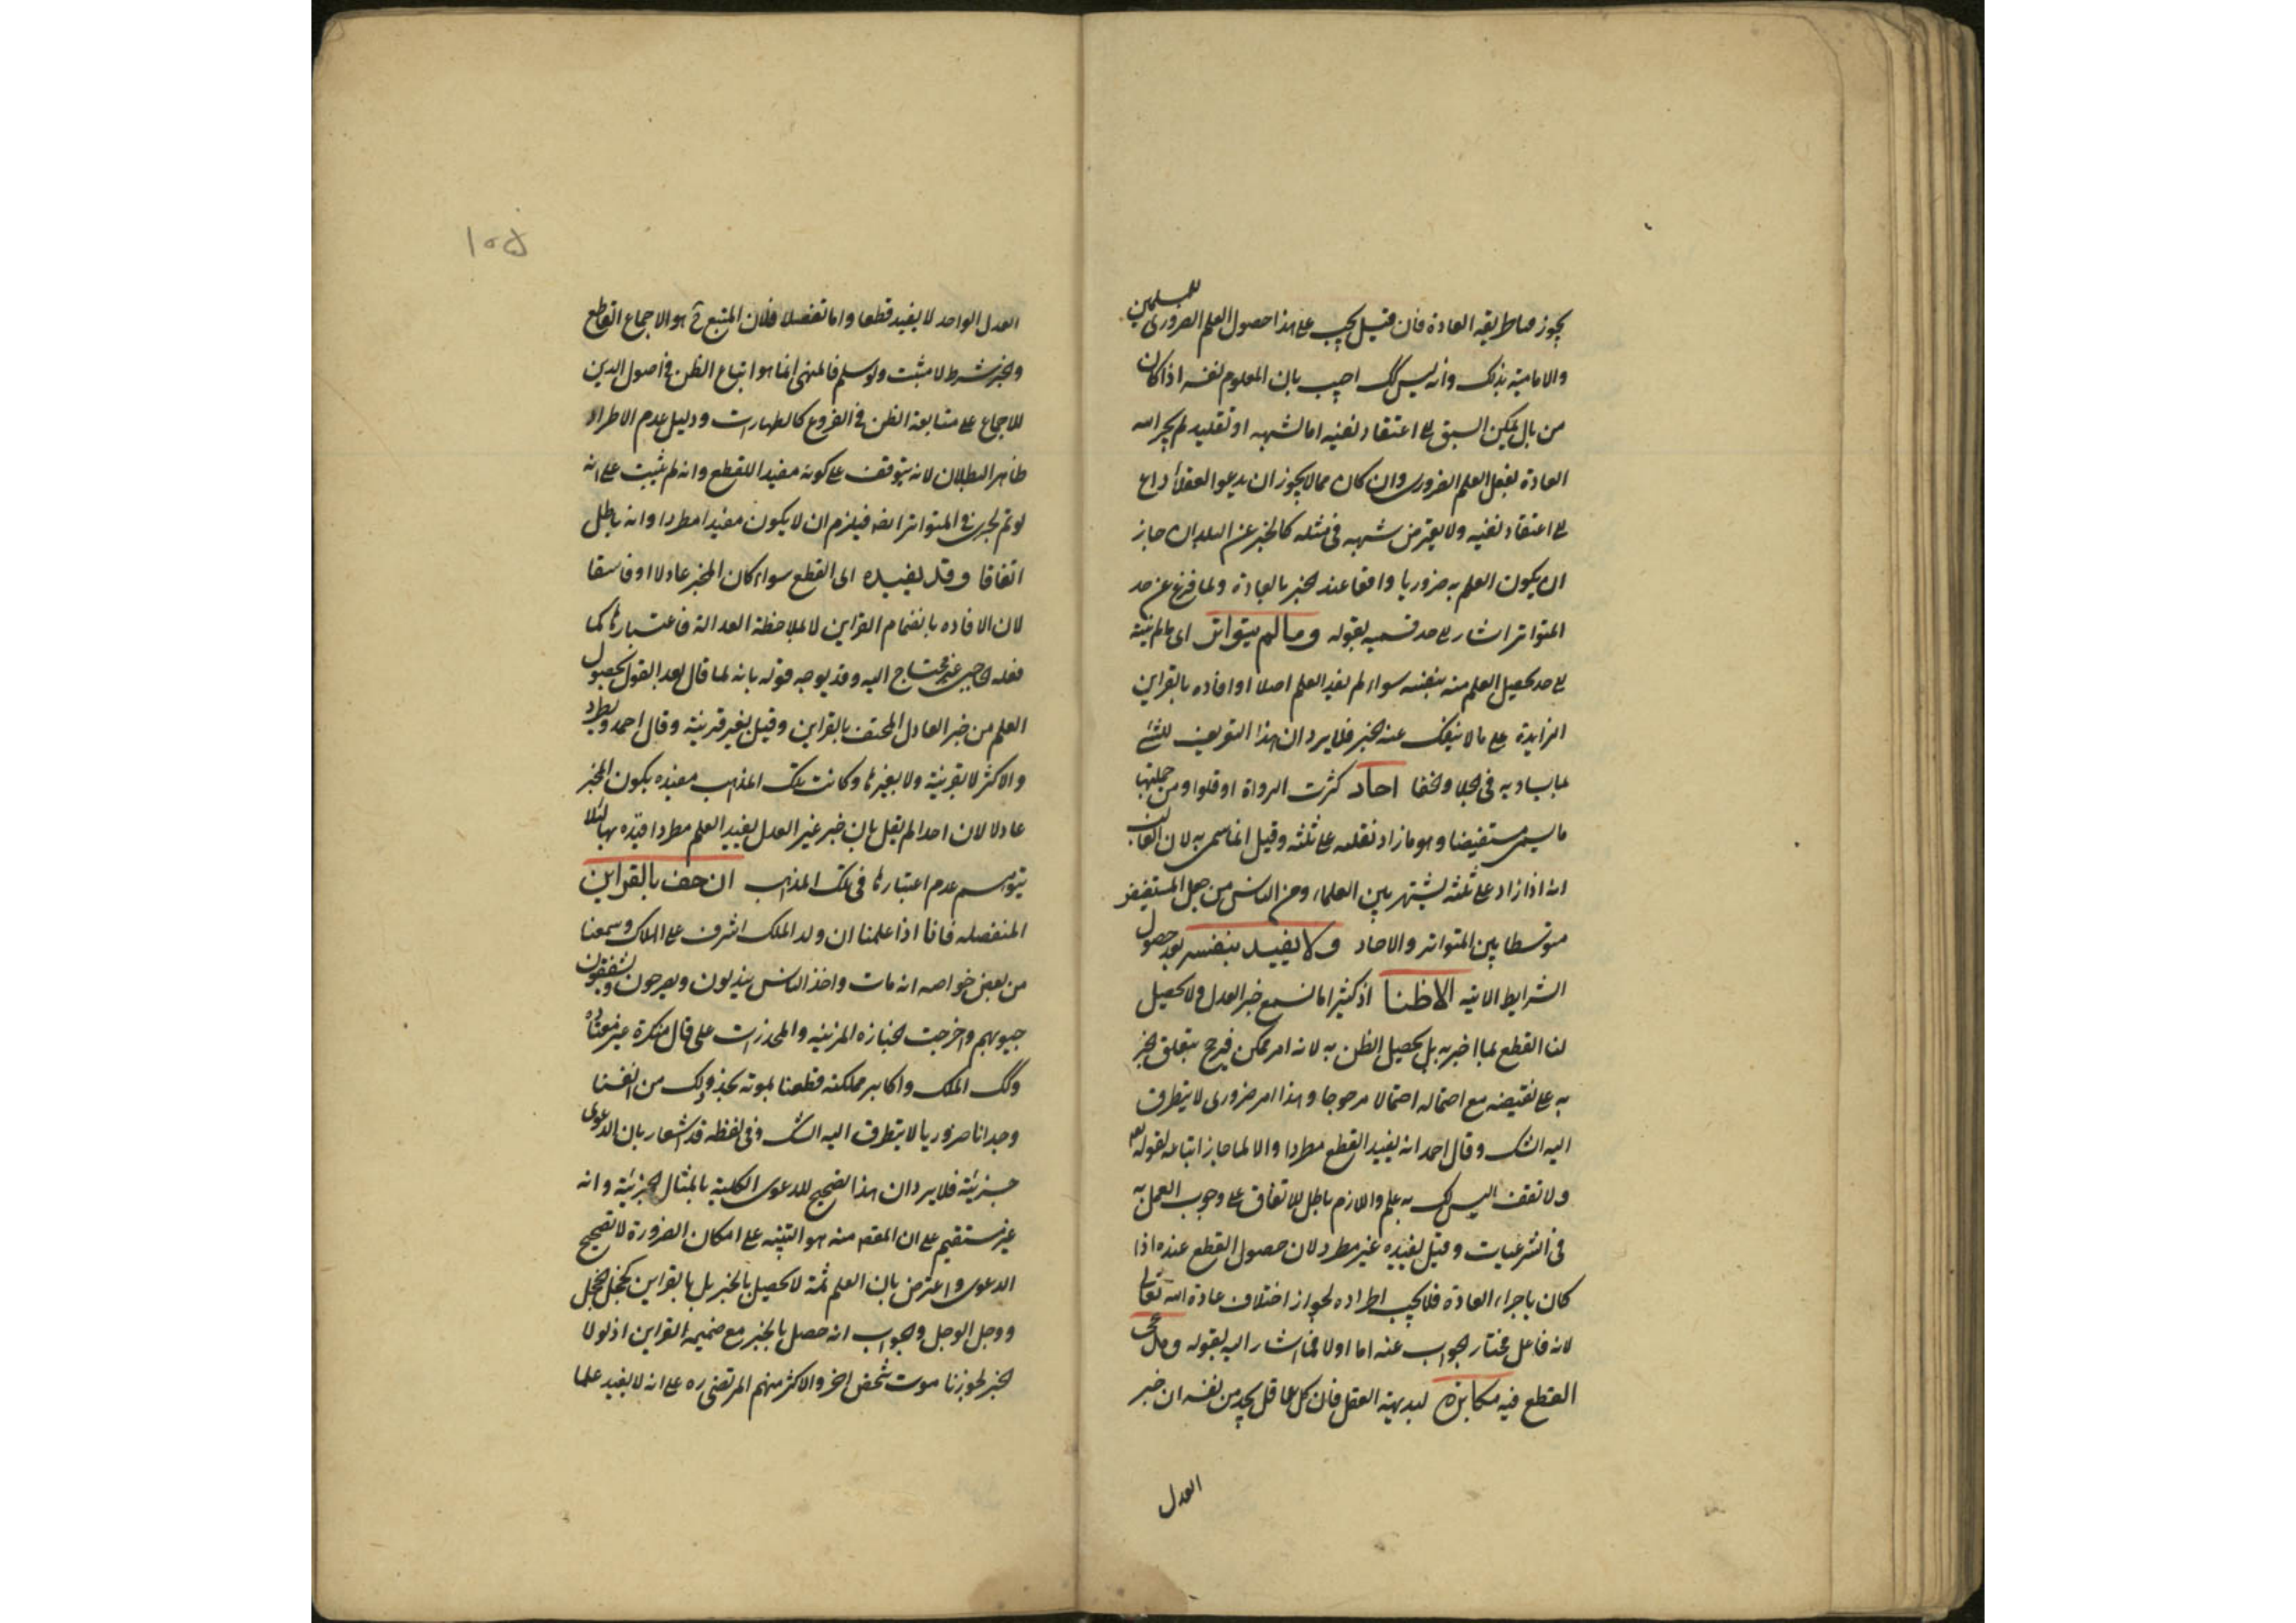 يجوز مناط بقية العادة فان قيل يجب على هذا حصول العلم الضرورى للمسلمين
والامامية بذلك وانه ليس كك اجيب بان المعلوم نفسه اذا كان
من بال يمكن السبق الى اعتقاد نفيه اما لشبهه او تقليد لم يجر الله
العادة بفعل العلم الضرورى وان كان مما لا يجوز ان يدعو العقلاء داع
الى اعتقاد نفيه ولا يعترض شبهه فى مثله كالخبر عن البلدان جاز
ان يكون العلم به ضروريا واقعا عند الخبر بالعادة ولما فرغ عن حد
المتواتر اشار الى حد قسميه بقوله وما لم يتواتر اى ما لم ينته
الى حد تحصيل العلم منه بنفسه سواء لم يفد العلم اصلا او افاده بالقراين
الزايدة على ما لا ينفك عنه الخبر فلا يرد ان هذا التعريف للشئ
بما يساويه فى الجلا والخفا احاد كثرت الرواة او قلوا ومن جملتها
ما يسمى مستفيضا وهو ما زاد نقلته على ثلثه وقيل انما سمى به لان الغالب
انه اذا زاد على ثلثه يشتهر بين العلماء ومن الناس من جعل المستفيض
متوسطا بين المتواتر والاحاد ولا يفيد بنفسه بعد حصول
الشرايط الاتيه الا ظنا اذ كثيرا ما نسمع خبر العدل ولا يحصيل
لنا القطع بما اخبر به بل يحصيل الظن به لانه امر ممكن فيرجح بتعلق الخبر
به على نقيضه مع احتماله احتمالا مرجوحا وهذا امر ضرورى لا يتطرق
اليه الشك وقال احمد انه يفيد القطع مطردا والا لما جاز اتباعه لقوله تعم
ولا تقف ما ليس لك به علم واللازم باطل للاتفاق على وجوب العمل به
فى الشرعيات وقيل يفيده غير مطرد لان حصول القطع عنده اذا
كان باجراء العادة فلا يجب اطراده لجواز اختلاف عادة الله تعالى
لانه فاعل مختار والجواب عنه اما اولا فما اشار اليه بقوله ومدعى
القطع فيه مكابرة لبديهة العقل فان كل عاقل يجد من نفسه ان خبر
العدل
١٥٥
العدل الواحد لا يفيد قطعا واما تفصيلا فلان المتبع ح هو الاجماع القاطع
والخبر شرط لا مثبت ولو سلم فالمنهى انما هو اتباع الظن فى اصول الدين
للاجماع على متابعة الظن فى الفروع كالطهارات ودليل عدم الاطراد
ظاهر البطلان لانه يتوقف على كونه مفيدا للقطع وانه لم يثبت على انه
لو تم لجرى فى المتواتر ايضا فيلزم ان لا يكون مفيدا مطردا وانه باطل
اتفاقا وقد يفيده اى القطع سواء كان المخبر عادلا او فاسقا
لان الافاده بانضمام القراين لا بملاحظة العدالة فاعتبارها كما
فعله الحاجبى غير محتاج اليه وقد يوجه قوله بانه لما قال بعد القول بحصول
العلم من خبر العادل المحتف بالقراين وقيل بغير قرينة وقال احمد ويطرد
والاكثر لا بقرينة ولا بغيرها وكانت تلك المذاهب مقيده بكون المخبر
عادلا لان احدا لم يقل بان خبر غير العدل يفيد العلم مطردا قيده بها لئلا
يتوهم عدم اعتبارها فى تلك المذاهب ان حف بالقراين
المنفصله فانا اذا علمنا ان ولد الملك اشرف على الهلاك وسمعنا
من بعض خواصه انه مات واخذ الناس يندبون ويصرخون ويشققون
جيوبهم واخرجت الجنازه المزينه والمخدرات على حال منكرة غير معتاده
وكك الملك واكابر مملكته قطعنا بموته نجد ذلك من انفسنا
وجدانا ضروريا لا يتطرق اليه الشك وفى لفظه قد اشعار بان الدعوى
جزئية فلا يرد ان هذا تصحيح للدعوى الكلية بالمثال الجزئية وانه
غير مستقيم على ان المقصد منه هو التنبيه على امكان الضرورة لا تصحيح
الدعوى واعترض بان العلم ثمة لا يحصيل بالخبر بل بالقراين كخجل الخجل
ووجل الوجل والجواب انه حصل بالخبر مع ضميمة القراين اذ لولا
الخبر لجوزنا موت شخص اخر والاكثر منهم المرتضى ره على انه لا يفيد علما